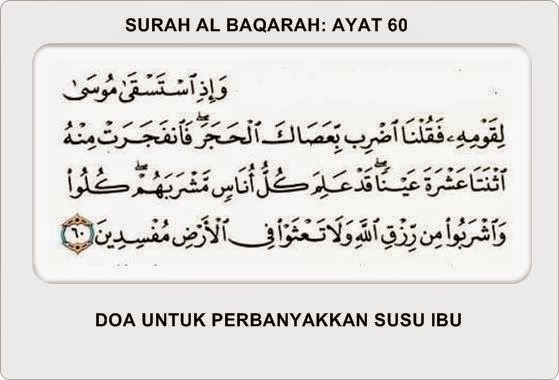 SURAH AL BAQARAH: AYAT 60
وَإِذِ ٱسْتَسْقَىٰ مُوسَىٰ
لِقَوْمِهِۦ فَقُلْنَا ٱضْرِب بِّعَصَاكَ ٱلْحَجَرَ ۖ فَٱنفَجَرَتْ مِنْهُ
ٱثْنَتَا عَشْرَةَ عَيْنًا ۖ قَدْ عَلِمَ كُلُّ أُنَاسٍ مَّشْرَبَهُمْ ۖ كُلُوا۟
وَٱشْرَبُوا۟ مِن رِّزْقِ ٱللَّهِ وَلَا تَعْثَوْا۟ فِى ٱلْأَرْضِ مُفْسِدِينَ ٦٠
DOA UNTUK PERBANYAKKAN SUSU IBU